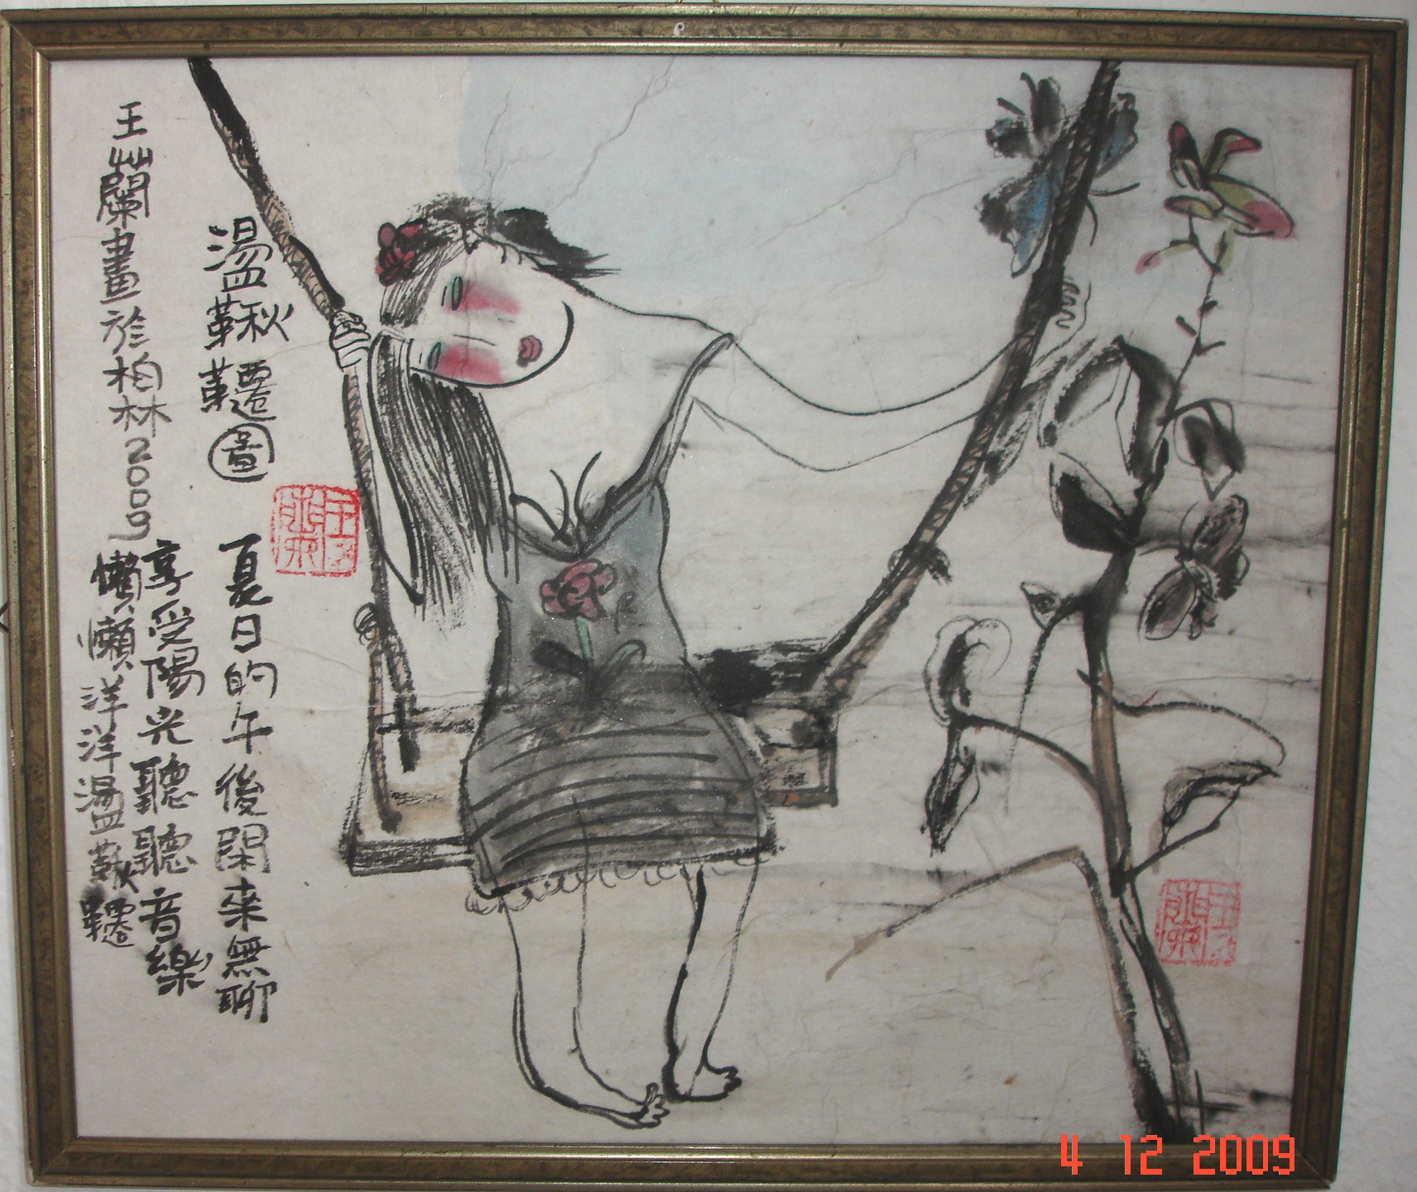 盪鞦韆圖
夏日的午後閑來無聊
享受陽光聽聽音樂
懶懶洋洋盪鞦韆
王蘭畫於柏林2009
4 12 2009